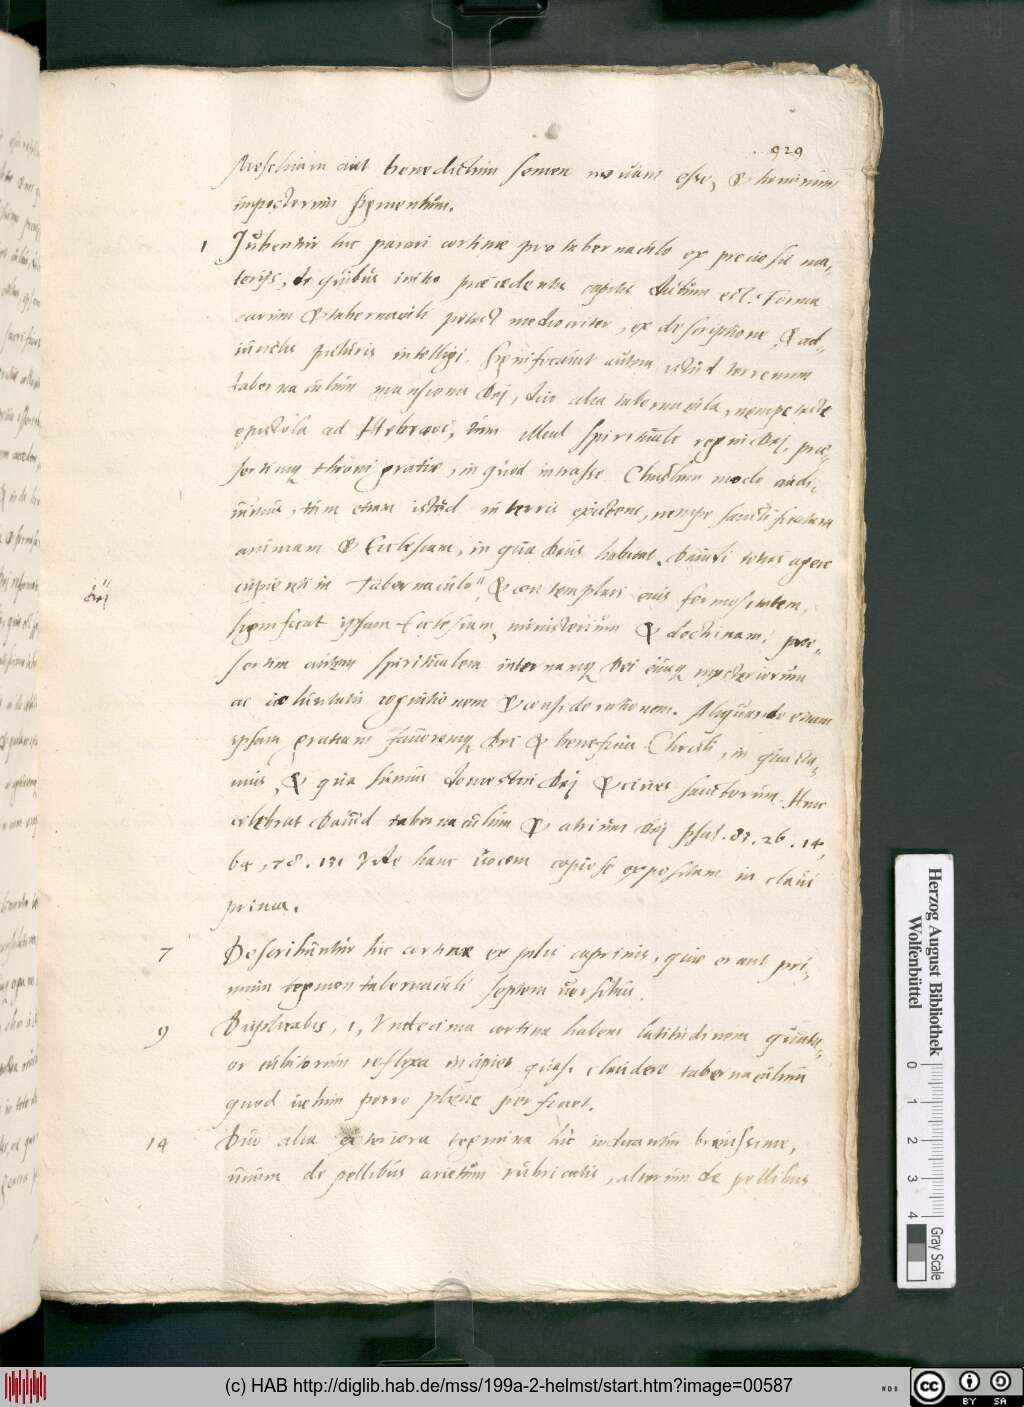 929
Messiam aut benedictum semen novum esse, & hominum
impostorum figmentum.
1 Jubentur hic parari cortinae pro tabernaculo ex preciosis ma-
terijs, de quibus initio praecedentis capitis dictum est. Forma
earum & tabernaculi potest mediocriter, ex descriptione & ad-
iunctis picturis intelligi. Significavit autem istud terrenum
tabernaculum mansionem Dei, duo alia tabernacula, nempe teste
epistola ad Hebraeos, tum illud spirituale regni Dei, prae-
sertimq throni gratiae, in quod intrasse Christum modo audi-
imus, tum etiam istud in terris existens, nempe sanctificatam
animam & Ecclesiam, in qua Deus habitat. Davidi totus agere
cupientis in tabernaculo " & contemplari eius formositatem,
Dei
significat ipsam Ecclesiam, ministerium & doctrinam, prae-
sertim autem spiritualem internamq Dei eiusq mysteriorum
ac voluntatis cognitionem & considerationem. Aliquando etiam
ipsam gratiam favoremq Dei & beneficia Christi, in qua sta-
mus, & qua sumus domestici Dei & cives sanctorum. Hinc
celebrat David tabernaculum & atrium Dei Psal. 83. 26. 14,
64, 78. 131 Vide hanc vocem copiose expositam in clavi
prima.
7 Describuntur hic cortinae ex pilis caprinis, quae erant pri-
mum tegmen tabernaculi septem versibus.
9 Duplicabis, i, Undecima cortina habens latitudinem quatu-
or cubitorum reflexa incipiet quasi claudere tabernaculum
quod velum porro plene perficiet.
14 Duo alia exteriora tegmina hic indicantur brevissime,
unum de pellibus arietum rubricatis, alterum de pellibus
Herzog August Bibliothek
Wolfenbüttel
0 1 2 3 4
Gray Scale
(c) HAB http://diglib.hab.de/mss/199a-2-helmst/start.htm?image=00587
cc BY SA